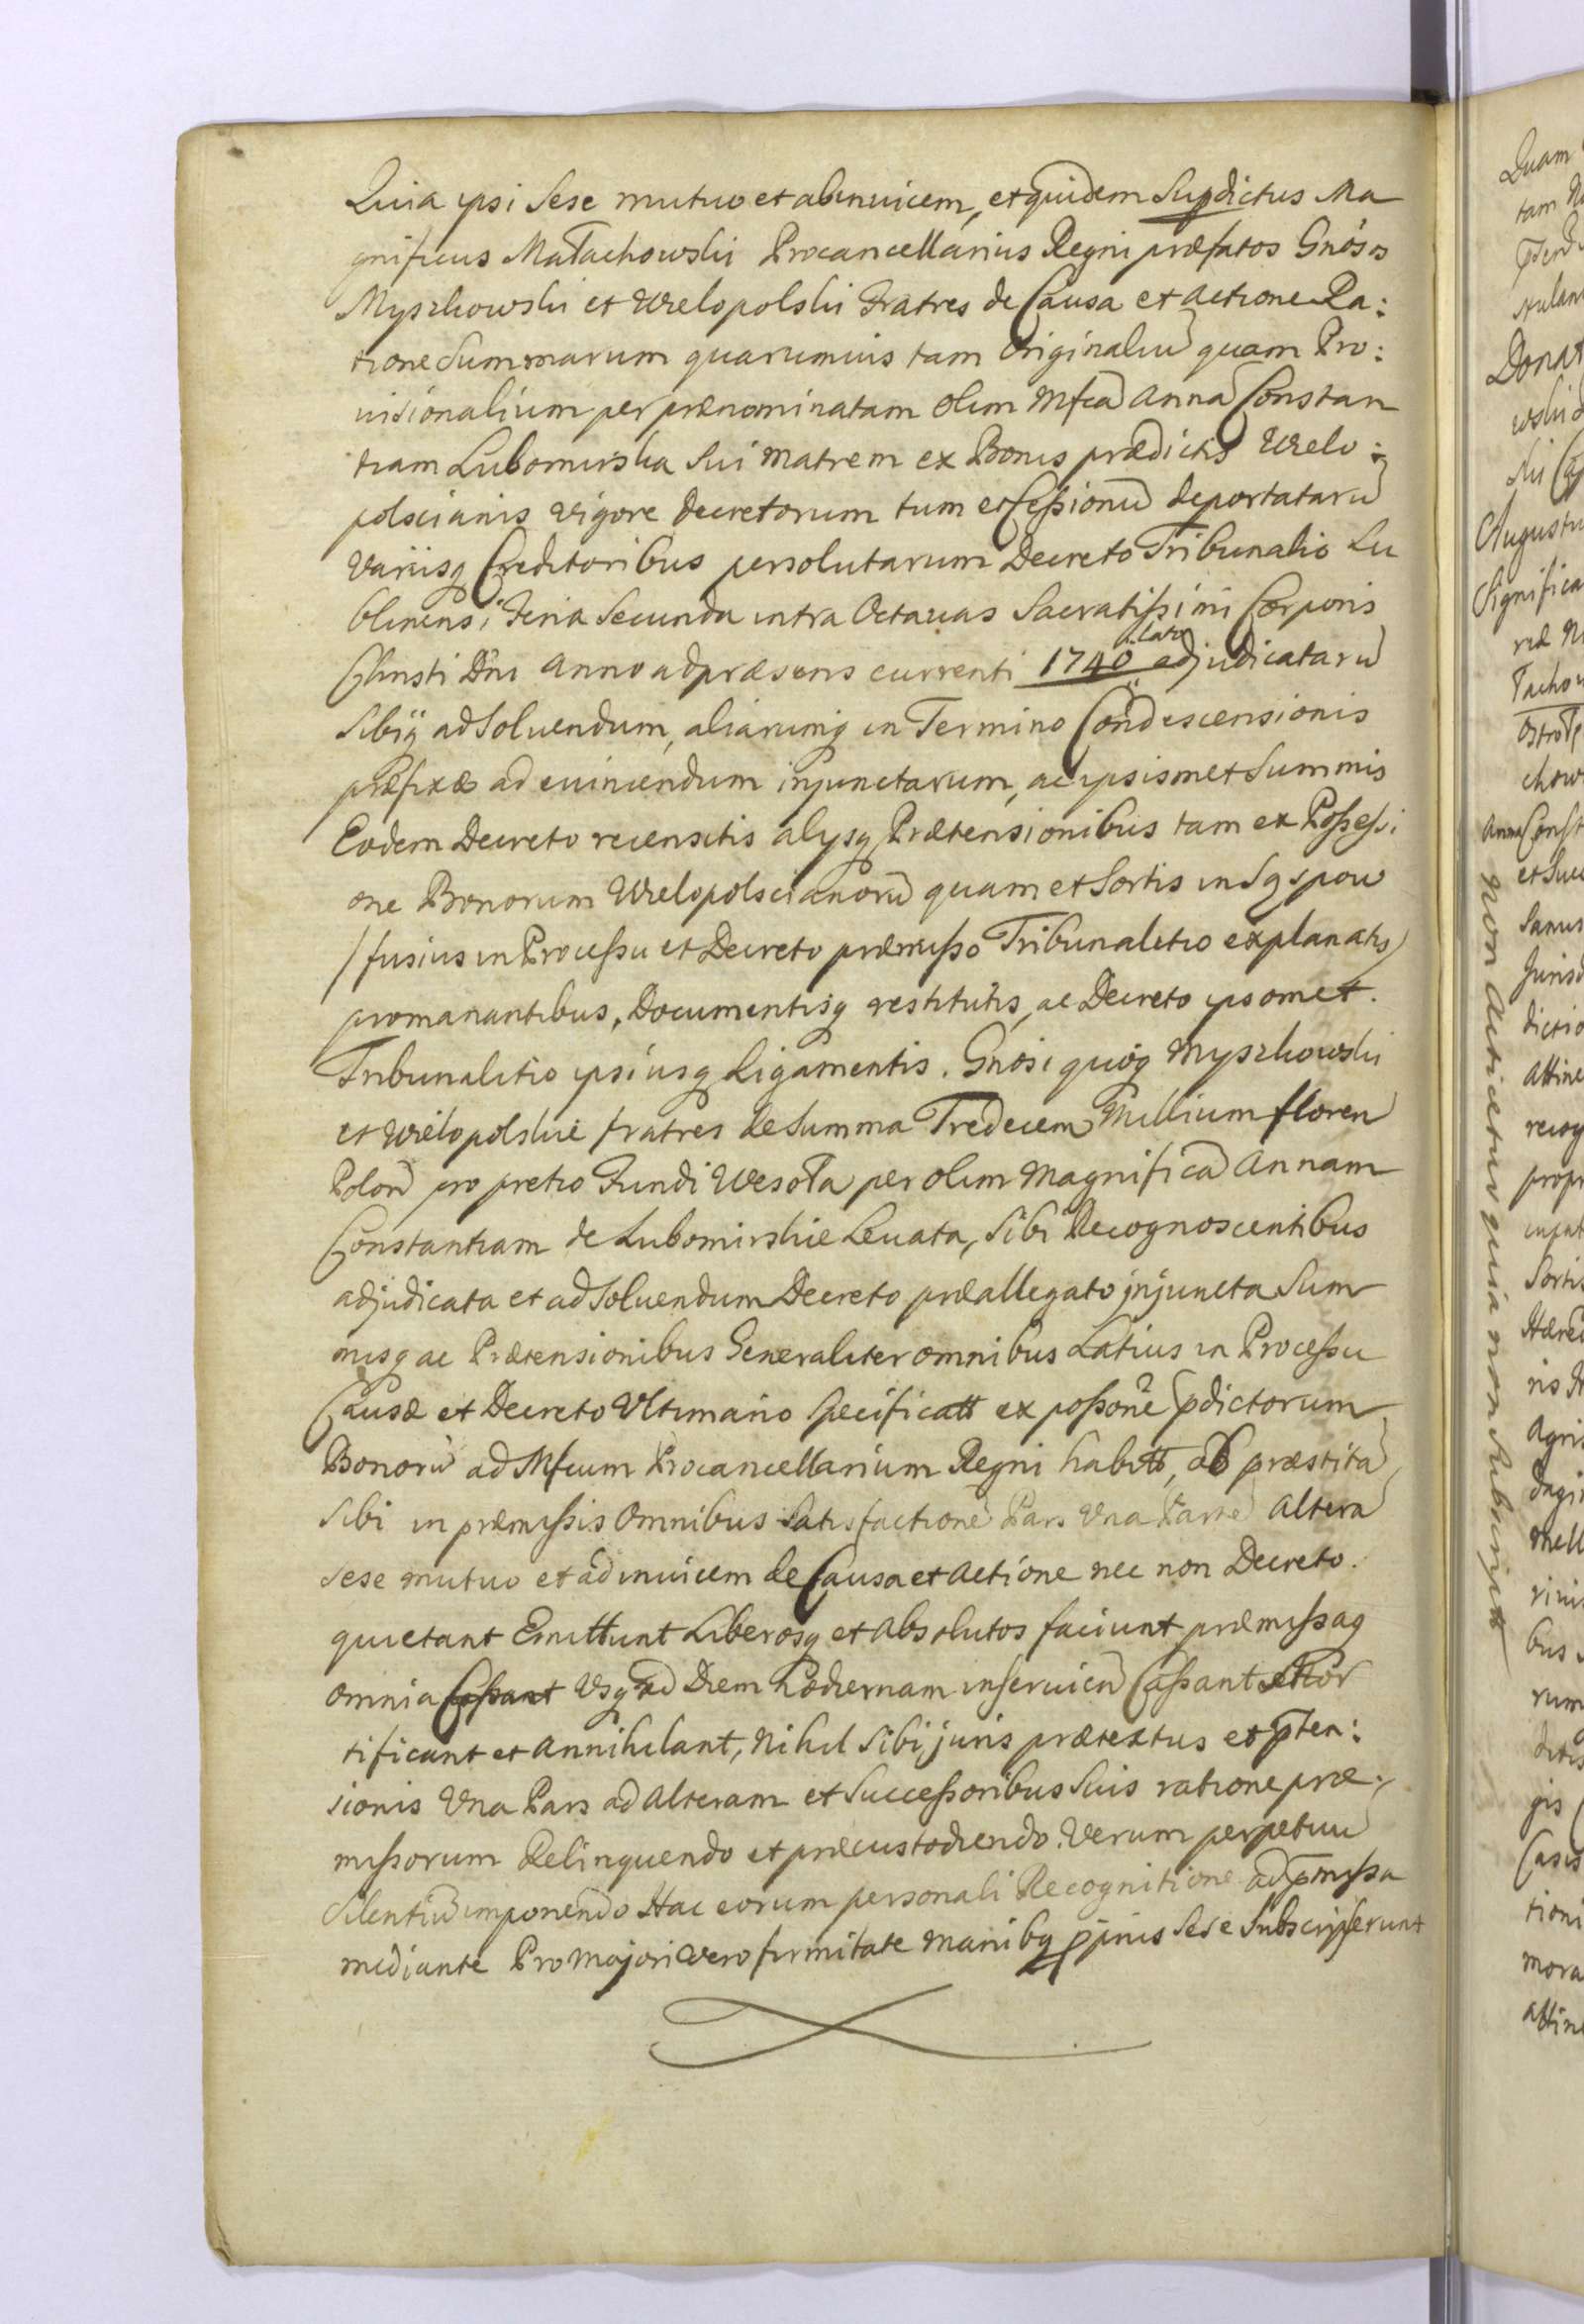 Quia ipsi Sese mutuo et abinuicem, et quidem Supdictus Ma
gnificus Małachowski Procancellarius Regni præfatos Gnosos
Myszkowski et Wielopolski Fratres de Causa et Actione Ra:
tione Summarum quarumuis tam Originaliu quam Pro:
uisionalium per prænominatam olim Mfca Anna Constan
tiam Lubomirska Sui Matrem ex Bonis prædictis Wielo:
polscianis Vigore Decretorum tum et Cessionu deportataru
Variisq Creditoribus persolutarum Decreto Tribunalis Lu
blinensi, Feria Secunda intra Octauas Sacratissimi Corporis
Christi Dni Anno ad præsens currenti 1740 Lato adjudicataru
Sibiq ad Soluendum, aliarumq in Termino Condescensionis
præfixæ ad euincendum injunctarum, ac ipsismet Summis
Eodem Decreto recensitis alysq Prætensionibus tam ex Possessi
one Bonorum Wielopolscianoru quam et Sortis in
/fusius in Processu et Decreto præmisso Tribunalitio explanatis/
promanantibus, Documentisq restitutis, ac Decreto ipsomet
Tribunalitio ipsiusq Ligamentis. Gnosi quoq Myszkowski
et Wielopolskie fratres de Summa Tredecem Millium floren
Polon pro pretio Fundi Wesoła per olim Magnifica Annam
Constantiam de Lubomirskie Leuata, Sibi Recognoscentibus
adjudicata et ad Soluendum Decreto præallegato injuncta Sum
misq ac Prætensionibus Generaliter omnibus Latius in Processu
Causæ et Decreto Vltimario Specificatt ex possone pdictorum
Bonoru ad Mfcum Procancellarium Regni habitt, ob præstita
Sibi in præmissis Omnibus Satisfactione Pars Vna Parte Altera
Sese mutuo et ad inuicem de Causa et Actione nec non Decreto
quietant Emittunt Liberosq et Absolutos faciunt præmissaq
omnia Cassant Vsq ad Diem hodiernam inseruien Cassant et Mor
tificant et Annihilant, Nihil Sibi juris prætextus et pten:
sionis Vna Pars ad Alteram et Successoribus Suis ratione præ:
missorum Relinquendo et præcustodiendo. Verum perpetuu
Silentiu imponendo Hac eorum personali Recognitione ad pmissa
mediante Pro Majori vero firmitate Manibq ppriis Sese Subscripserunt
non Acticetur quia non Subscriptt